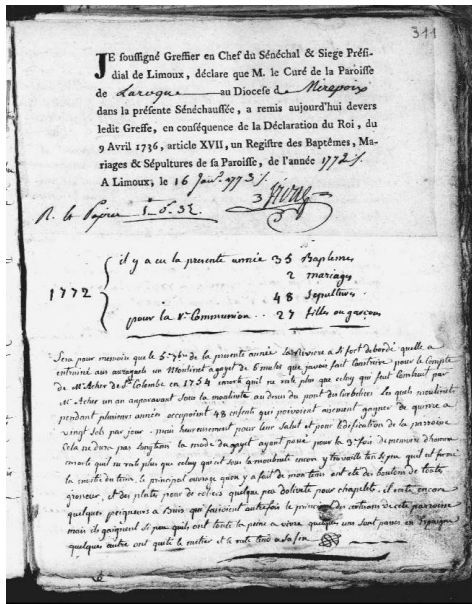 311
JE soussigné Greffier en Chef du Sénéchal & Siege Prési-
dial de Limoux, déclare que M. le Curé de la Paroisse
de Laroque au Diocese de Mirepoix
dans la présente Sénéchaussée, a remis aujourd'hui devers
ledit Greffe, en conséquence de la Déclaration du Roi, du
9 Avril 1736, article XVII, un Registre des Baptêmes, Ma-
riages & Sépultures de sa Paroisse, de l'année 1772
A Limoux, le 16 Janv. 1773
R. le Papier
il y a eu la presente année 35 Baptemes
2 mariages
1772
48 Sepultures
pour la 1re Communion .. 27 filles ou garçons
Sera pour memoire que le 5e 7bre de la presente année la Riviere a si fort debordé quelle a
entrainé aux arraguals un Moulinet a gayet de 6 mules que javois fait Construire pour le Compte
de Mr Acher de Ste Colombe en 1754 encore quil ne reste plus que celuy qui feut Construit par
Mr Acher un an auparavant sous la mouline au deçus du pont
pendant plusieurs années occupoint 48 enfents qui pouvoient aisement gagner de quinze a
vingt sols par jour. mais heureusement pour leur salut et pour l'edification de la parroisse
Cela ne dura pas longtems la mode du gayet ayant passé pour la fois de memoire d'homme
reste plus que celuy qui est sous la encore y travaille t'on si peu quil est fermé
la moitié du tems. le principal ouvrage quon y a fait de mon tems ont eté des boutons de toute
grosseur, et des plats pour de colliers quelque peu dolivete pour chapelets. il reste encore
quelques peigneurs a Buis qui faisoient autrefois le principal des artisans de cete parroisse
mais ils gaignent si peu quils ont toute la peine a vivre quelques uns sont passés en Espaigne
quelques autres ont quité le metier et le reste tend a sa fin